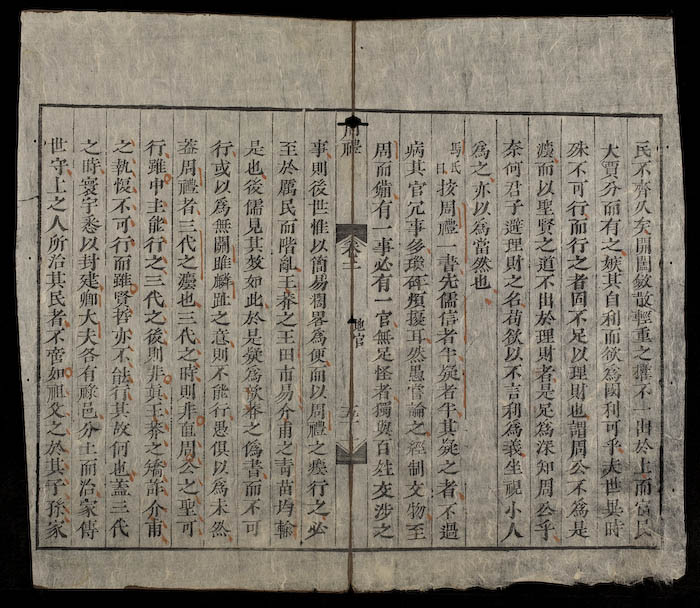 民不齊久矣開闔斂散輕重之權不一出於上而富民
大賈分而有之嫉其自利而欲為國利可乎夫世異時
殊不可行而行之者固不足以理財也謂周公不為是
灋而以聖賢之道不出於理財者是足為深知周公乎
奈何君子避理財之名苟欲以不言利為義坐視小人
為之亦以為當然也
馬氏曰按周禮一書先儒信者半疑者半其疑之者不過
病其官冗事多瑣碎煩擾耳然愚嘗論之經制文物至
周而備有一事必有一官無足怪者獨與百姓交涉之
周禮
卷三
地官
事則後世惟以簡易濶畧為便而以周禮之灋行之必
至於厲民而階亂王莽之王田市易介甫之青苗均輸
是也後儒見其效如此於是疑為歆莽之偽書而不可
行或以為無關雎麟趾之意則不能行愚俱以為未然
蓋周禮者三代之灋也三代之時則非直周公之聖可
行雖中主能行之三代之後則非直王莽之矯詐介甫
之執愎不可行而雖賢哲亦不能行其故何也蓋三代
之時寰宇悉以封建卿大夫各有祿邑分土而治家傳
世守上之人所治其民者不啻如祖父之於其子孫家